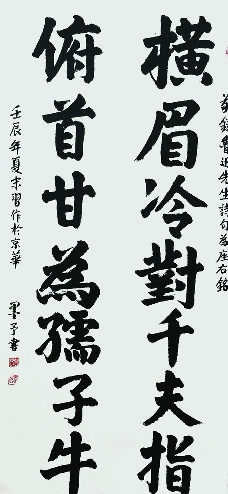 敬錄魯迅先生詩句為座右銘
橫眉冷對千夫指
俯首甘為孺子牛
壬辰年夏末習作於京華
墨予書